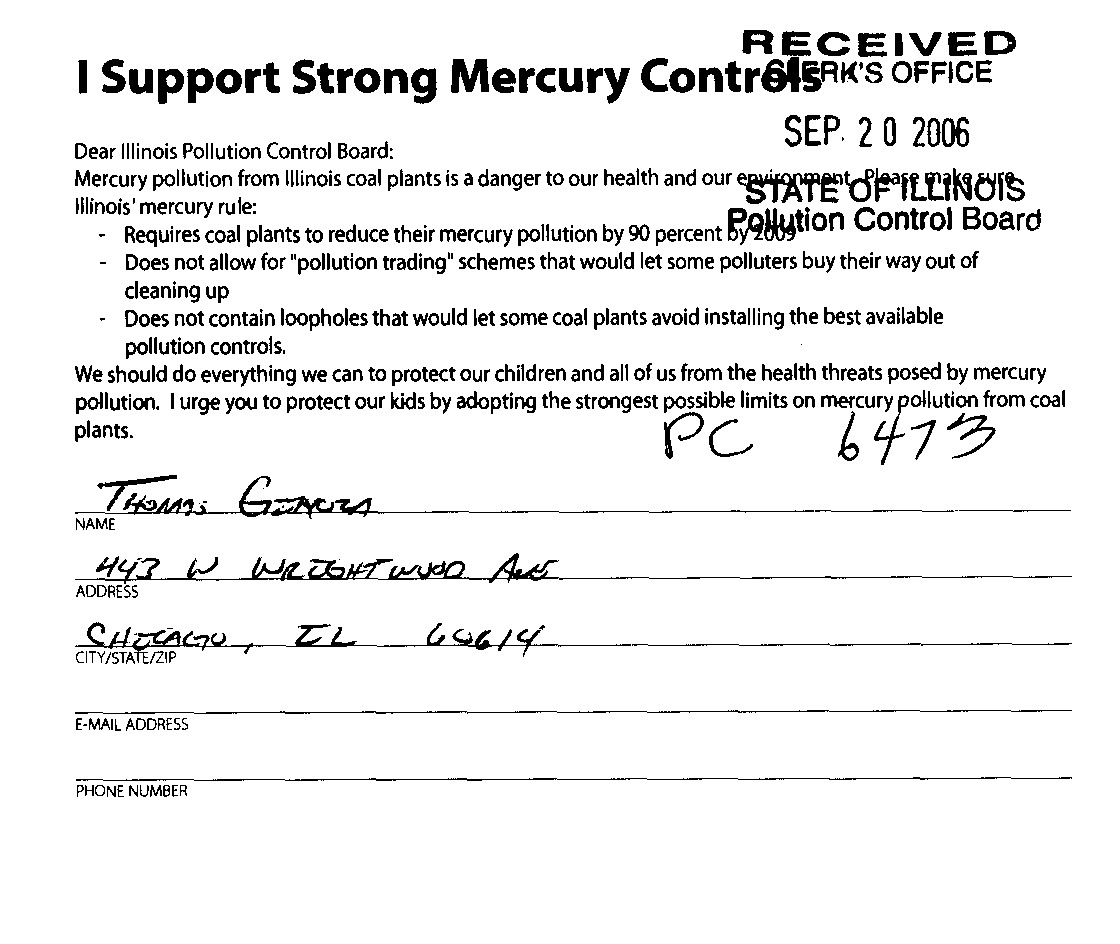 RECEIVED
CLERK'S OFFICE
I Support Strong Mercury Controls
SEP. 20 2006
Dear Illinois Pollution Control Board:
Mercury pollution from Illinois coal plants is a danger to our health and our environment. Please make sure
STATE OF ILLINOIS
Illinois' mercury rule:
Pollution Control Board
- Requires coal plants to reduce their mercury pollution by 90 percent by 2009
- Does not allow for "pollution trading" schemes that would let some polluters buy their way out of
cleaning up
- Does not contain loopholes that would let some coal plants avoid installing the best available
pollution controls.
We should do everything we can to protect our children and all of us from the health threats posed by mercury
pollution. I urge you to protect our kids by adopting the strongest possible limits on mercury pollution from coal
plants.
PC 6473
THOMAS
NAME
443 W WRIGHTWOOD AVE
ADDRESS
CHICAGO, IL 60614
CITY/STATE/ZIP
E-MAIL ADDRESS
PHONE NUMBER